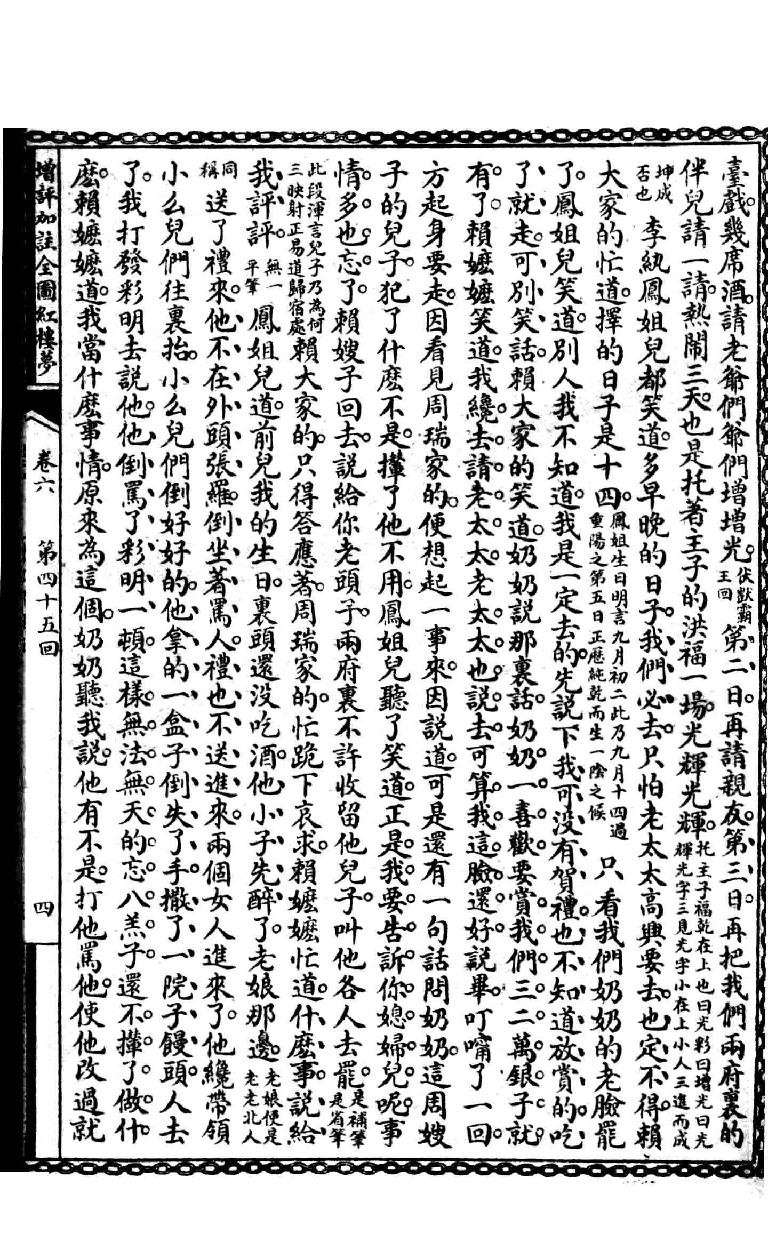 臺戲幾席酒請老爺們爺們增增光伏獸霸王回第二日再請親友第三日再把我們兩府裏的
伴兒請一請熱鬧三天也是托著主子的洪福一塲光輝光輝托主子福乾在上也曰光彩曰增光曰光輝光字三見光字小在上小人三進而成
坤成否也李紈鳳姐兒都笑道多早晚的日子我們必去只怕老太太高興要去也定不得賴
大家的忙道擇的日子是十四鳳姐生日明言九月初二此乃九月十四過重陽之第五日正應純乾而生一陰之候只看我們奶奶的老臉罷
了鳳姐兒笑道別人我不知道我是一定去的先說下我可没有賀禮也不知道放賞的吃
了就走可別笑話賴大家的笑道奶奶說那裏話奶奶一喜歡要賞我們三二萬銀子就
有了賴嬷嬷笑道我纔去請老太太老太太也說去可算我這臉還好說畢叮嚀了一回
方起身要走因看見周瑞家的便想起一事來因說道可是還有一句話問奶奶這周嫂
子的兒子犯了什麽不是攆了他不用鳳姐兒聽了笑道正是我要告訴你媳婦兒呢事
情多也忘了賴嫂子回去說給你老頭子兩府裏不許收留他兒子叫他各人去罷是補筆是省筆
此段渾言兒子乃為何三映射正易道歸宿處賴大家的只得答應著周瑞家的忙跪下哀求賴嬷嬷忙道什麽事說給
我評評無一平筆鳳姐兒道前兒我的生日裏頭還没吃酒他小子先醉了老娘那邊老娘便是老老北人
同稱送了禮來他不在外頭張羅倒坐著罵人禮也不送進來兩個女人進來了他纔帶領
小么兒們往裏抬小么兒們倒好好的他拿的一盒子倒失了手撒了一院子饅頭人去
了我打發彩明去説他他倒罵了彩明一頓這樣無法無天的忘八羔子還不攆了做什
麽賴嬷嬷道我當什麽事情原來為這個奶奶聽我説他有不是打他罵他使他改過就
增評加註全圖紅樓夢
卷六
第四十五回
四